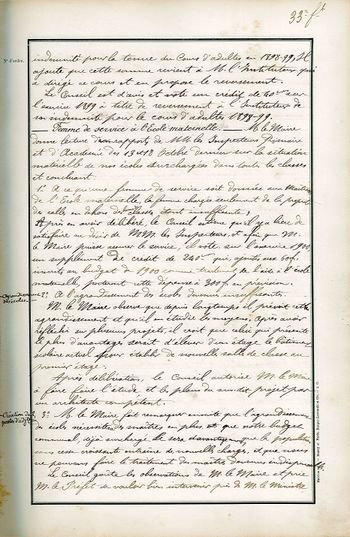 33 ft
N° d'ordre.
indemnité pour la tenue du Cours d'adultes en 1898-99. Il
ajoute que cette somme revient à M. l'Instituteur qui
a dirigé ce cours et en propose le reversement.
Le Conseil est d'avis et vote un crédit de 40f sur
l'exercice 1899 à titre de reversement à l'Instituteur de
son indemnité pour le cours d'adultes 1898-99.
Femme de service à l'Ecole maternelle. — M. le Maire
donne lecture des rapports de MM. les Inspecteurs Primaire
et d'Académie des 13 et 18 Octobre dernier sur la situation
matérielle de nos écoles surchargées dans toutes les classes
et concluant
1° A ce qu'une femme de service soit donnée aux
de l'Ecole maternelle, la femme chargée seulement de la
de salle en dehors des classes étant insuffisante;
Après en avoir délibéré, le Conseil estime qu'il y a lieu de
satisfaire au désir de MM. les Inspecteurs, et afin que M.
le Maire puisse assurer le service, il vote sur l'exercice 1900
un supplément de crédit de 240f qui, ajoutés aux 60f
inscrits au budget de 1900 comme traitement de l'aide à l'école
maternelle, porteront cette dépense à 300f en prévision.
Agrandissement des écoles
2° A l'agrandissement des écoles devenues insuffisantes.
M. le Maire observe que depuis longtemps il prévoit cet
agrandissement et qu'il en étudie les moyens. Après avoir
réfléchi sur plusieurs projets, il croit que celui qui présente
le plus d'avantages serait d'élever d'un étage le bâtiment
scolaire actuel pour établir de nouvelles salles de classe au
premier étage.
Après délibération, le Conseil autorise M. le Maire
à faire faire l'étude et le plan du susdit projet par
un architecte compétent.
Création de postes d'adjts
3° M. le Maire fait remarquer ensuite que l'agrandissement
des écoles nécessitera des maîtres en plus et que notre budget
communal, déjà surchargé le sera davantage que la population
sans cesse croissante entraîne de nouvelles charges, et que nous
ne pouvons faire le traitement du maître devenu indispensable.
Le Conseil goûte les observations de M. le Maire et prie
M. le Préfet de vouloir bien intervenir près de M. le Ministre